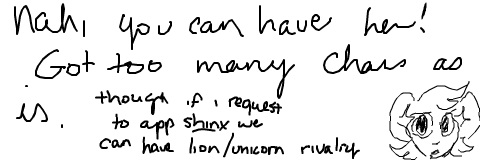 Nah, you can have her!
Got too many chars as
is.
though if i request
to app shinx we
can have lion/unicorn rivalry